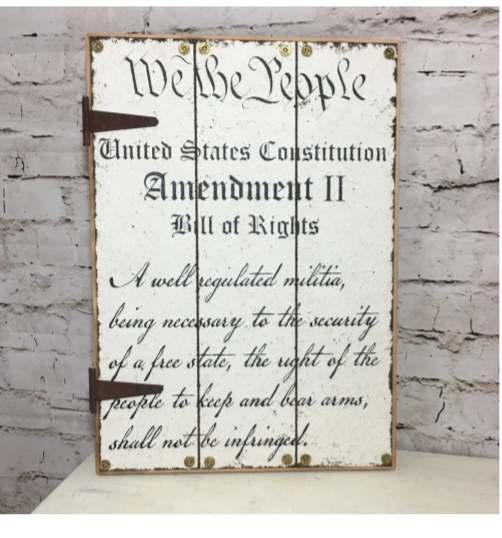 We the People
United States Constitution
Amendment II
Bill of Rights
A well regulated militia,
being necessary to the security
of a free state, the right of the
people to keep and bear arms,
shall not be infringed.